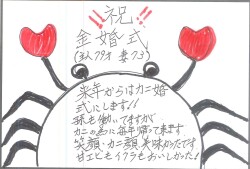 祝
金婚式
(主人79才 妻73)
来年からはカニ婚
式にします!!
孫も働いてますが
カニの為に毎年帰って来ます
笑顔・カニ顔美味かったです
甘エビもイクラもおいしかった!